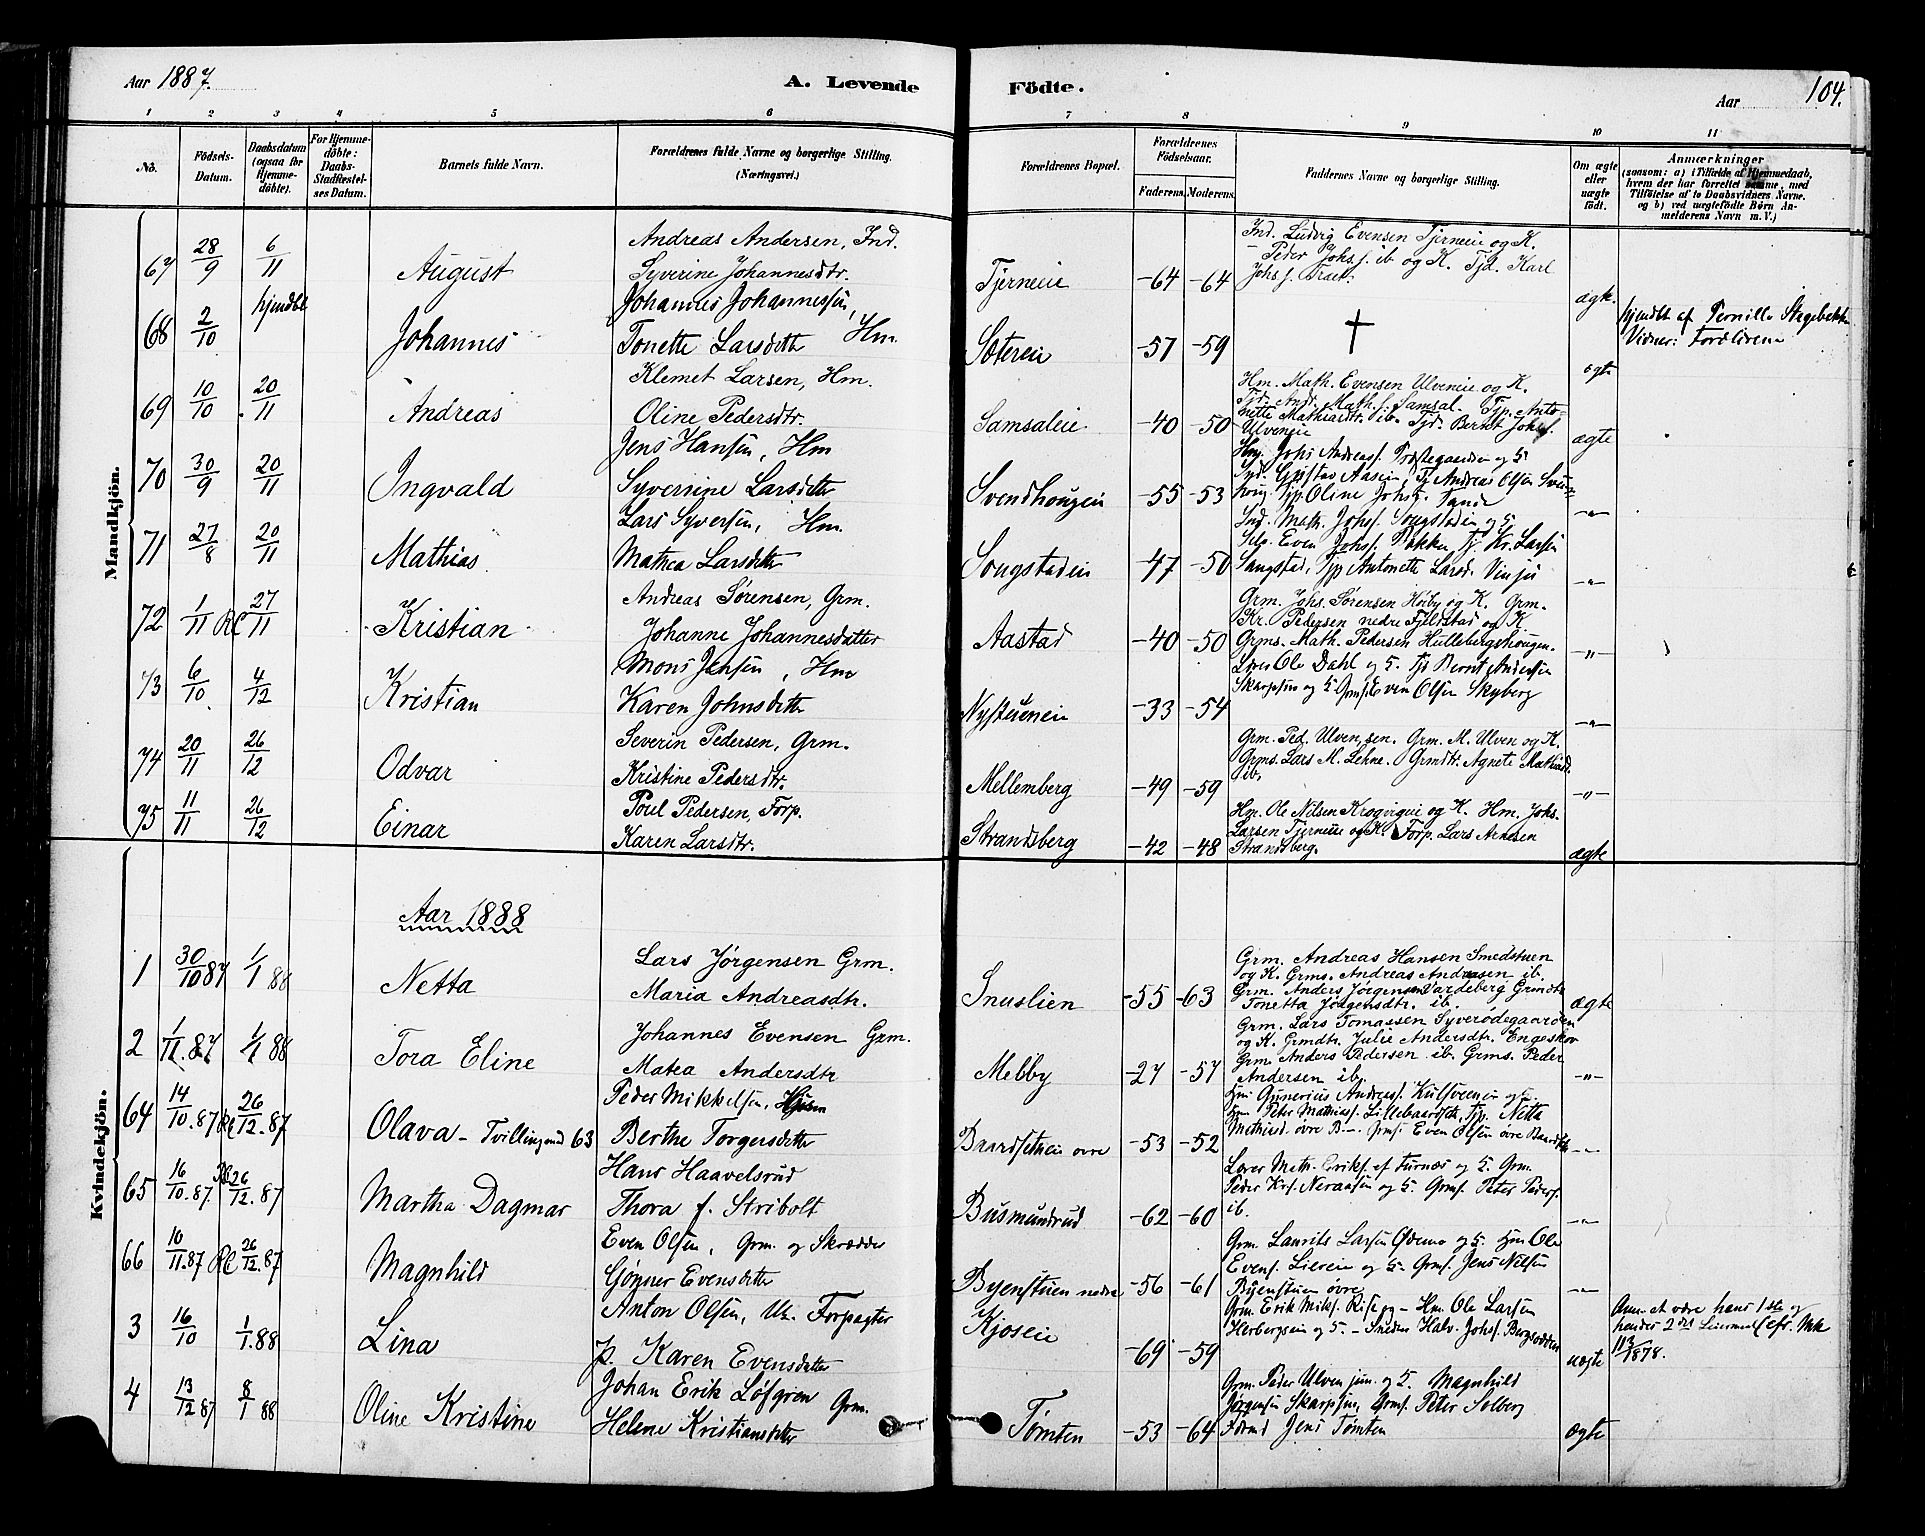 Aar 1887.
A. Levende
Födte.
Aar
104.
1 2 3 4 5 6 7 8 9 10 11
No.
Födsels-Datum.
Daabsdatum (ogsaa for Hjemme-döbte).
For Hjemme-döbte: Daabs-Stadfæstel-ses Datum.
Barnets fulde Navn.
Forældrenes fulde Navne og borgerlige Stilling.
(Næringsvei.)
Forældrenes Bopæl.
Forældrenes Födselsaar.
Faderens. Moderens.
Faddernes Navne og borgerlige Stilling.
Om ægte eller uægte födt.
Anmærkninger
(saasom: a) i Tilfælde af Hjemmedaab, hvem der har forrettet samme, med Tilföielse af to Daabsvidners Navne. og b) ved uægtefödte Börn An-melderens Navn m. V.)
Mandkjön.
67 28/9 6/11 August
Andreas Andersen, Ind.
Syverine Johannesdtr.
Tjerneie -64 -64
Ind. Ludvig Evensen Tjerneie og K.
- Peder Johs.s. ib og K. Tjd. Karl
Johs.s. Traet.
ægt.
68 2/10 hjemdbt Johannes
Johannes Johannessen,
Tonette Larsdatter Hm.
Sætereie -57 -59
†
ægte
hjemdbt af Pernille Stagebakken
Vidner: Forældrene
69 10/10 20/11 Andreas
Klemet Larsen, Hm.
Oline Pedersdtr.
Samsaleie -40 -50
Hm. Math. Evensen Ulveneie og K.
Tjd. And. Math.s. Samsal. Tjp. Anto-
nette Mathiasdtr. ib. Tjd. Bernt Johs.s.
Ulveneie
ægte
70 30/9 20/11 Ingvald
Jens Hansen, Hm
Syverine Larsdatter
Svendhougen -55 -53
Hmj. Johs Andreass. Præstegaarden og K.
Tjp Oline Johs.
-"-
71 27/8 20/11 Mathias
Lars Syversen, Hm.
Mathea Larsdatter
Songstadeie -47 -50
Ind. Math. Johs.s. Songstadeie og K.
Selv. Even Johs.s. Bakken, Tj. Kr. Larsen
Sangstad, Tjp Antonette Larsd. Vinju
-"-
72 1/11 RC 27/11 Kristian
Andreas Sørensen, Grm.
Johanne Johannesdatter
Aastad -40 -50
Grm. Johs. Sørensen Høiby og K. Grm.
Kr. Pedersen nedre Fjeldstad og K
Grms. Math. Pedersen Hullebergshougen.
-"-
73 6/10 4/12 Kristian
Mons Jensen, Hm
Karen Johnsdatter
Nystueneie -33 -54
Ole Dahl og K. Tjd Bernt Andersen
Skarpsen og K Grms. Even Olsen Skyberg
-"-
74 20/11 26/12 Odvar
Severin Pedersen, Grm.
Kristine Pedersdtr.
Mellemberg -49 -59
Grm. Ped. Ulven, sen. Grm. M. Ulven og K.
Grms. Lars M. Lehne. Grmdtr. Agnete Mathiasd.
ib.
-"-
75 11/11 26/12 Einar
Poul Pedersen, Forp.
Karen Larsdtr.
Strandsberg -42 -48
Hm. Ole Nilsen Krogvigeie og K. Hm. Johs.
Larsen Tjerneie og K. Forp. Lars Arnesen
Strandsberg.
ægte
Kvindekjön.
Aar 1888
1 30/10 87 1/1 88 Netta
Lars Jørgensen Grm.
Maria Andreasdtr.
Snuslien -55 -63
Grm. Andreas Hansen Smedstuen
og K. Grms. Andreas Andreasen ib.
Grm. Anders Jørgensen Vardeberg Grmdtr
Tonetta Jørgensdtr. ib.
ægte
2 1/11.87 1/1 88 Tora Eline
Johannes Evensen Grm.
Matea Andersdtr
Melby -27 -57
Grm. Lars Tomassen Syverødegaarden
og K. Grmdtr. Julie Andersdtr. Engeskov
Grm. Anders Pedersen ib. Grms. Peder
Andersen ib.
-"-
64 14/10.87 RC 26/12.87 Olava - Tvilling med 63
Peder Mikkelsen,
Berthe Torgersdatter
Baardseteie øvre -53 -52
Hm Gunerius Andreass. Kulsveeneie og K.
Hm Peter Mathiass. Lillebaardset. Tjp. Netta
Mathiasd. øvre B-. Grms. Even Olsen øvre Baardset
-"-
65 16/10.87 26/12.87 Martha Dagmar
Hans Haavelsrud
Thora f. Stribolt
Busmundrud -62 -60
Lærer Math. Eriks. af Furnæs og K. Grm.
Peder Krs. Neraasen og K. Grms. Peter Peders.
ib.
-"-
66 10/11.87 RC 26/12.87 Magnhild
Even Olsen, Grm. og Skrædder
Gønner Evensdatter
Byenstuen nedre -56 -61
Grm. Laurits Larsen Ødemo og K. Hm Ole
Evens. Liereie og K. Grms. Jens Nilsen
Byenstuen øvre
-"-
3 16/10 1/1.88 Lina
Anton Olsen, Uk. Forpagter
p. Karen Evensdatter
Kjoseie -69 -59
Grm. Erik Miks. Rise og - Hm. Ole Larsen
Herbergseie og K. - Smeden Halv. Johs.s. Bergsodden
uægte
Anm. at være hans 1ste og
hendes 2det Leiermaal cfr. Mk
11/3 1878.
4 13/12 87 8/1 88 Oline Kristine
Johan Erik Løfgren Grm.
Helene Kristiansdatter
Tømten -53 -64
Grm. Peder Ulven jun. og K. Magnhild
Jørgensen Skarpsen, Grms. Peter Solberg
Jens Tømten
ægte